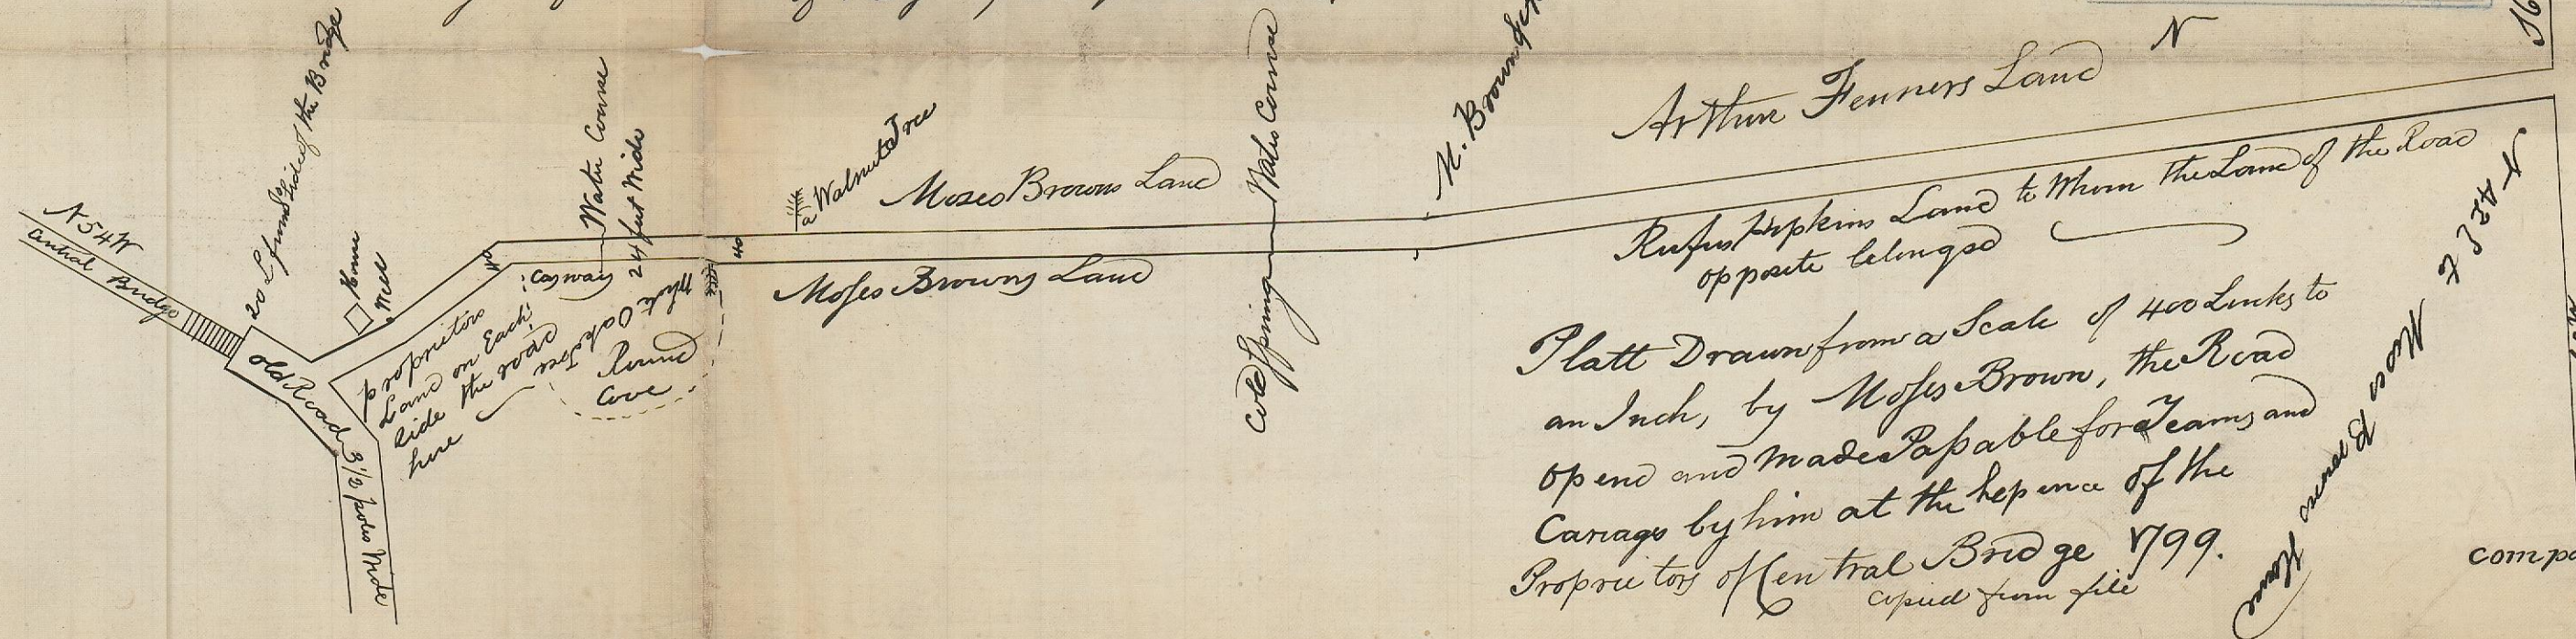 N 54 W
Central Bridge
20 L from Side of the Bridge
House
Well
Old Road 3 1/2 poles Wide
40
Proprietors
Land on Each
Side the road
here
Casway
Water Course
24 feet Wide
White Oak Tree
Round
Cove
40
a Walnut Tree
Moses Browns Land
Moses Browns Land
Cold Spring Water Course
M. Brown
Arthur Fenners Land
N
Rufus Hopkins Land to Whom the Land of the Road
opposite belonged
N 42 E
House
Platt Drawn from a Scale of 400 Links to
an Inch, by Moses Brown, the Road
opend and made Passable for Teams and
Cariages by him at the Expence of the
Proprietors of Central Bridge 1799.
Copied from file